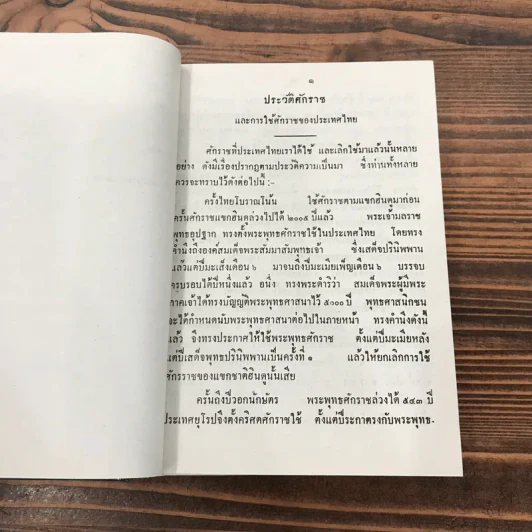 ๑
ประวัติศักราช
และการใช้ศักราชของประเทศไทย
ศักราชที่ประเทศไทยเราได้ใช้ และเลิกใช้มาแล้วนั้นหลาย
อย่าง ดังมีเรื่องปรากฏตามประวัติความเป็นมา ซึ่งท่านทั้งหลาย
ควรจะทราบไว้ดังต่อไปนี้ :-
ครั้งไทยโบราณโน้น ใช้ศักราชตามแขกฮินดูมาก่อน
ครั้นศักราชแขกฮินดูล่วงไปได้ ๒๐๐๕ ปีแล้ว พระเจ้ามลราช
พุทธอุปฐาก ทรงตั้งพระพุทธศักราชใช้ในประเทศไทย โดยทรง
คำนึงถึงองค์สมเด็จพระสัมมาสัมพุทธเจ้า ซึ่งเสด็จปรินิพพาน
แล้วแต่ปีมะเส็งเดือน ๖ มาจนถึงปีมะเมียเพ็ญเดือน ๖ บรรจบ
ครบรอบได้ปีหนึ่งแล้ว อนึ่ง ทรงพระดำริว่า สมเด็จพระผู้มีพระ
ภาคเจ้าได้ทรงบัญญัติพระพุทธศาสนาไว้ ๕๐๐๐ ปี พุทธศาสนิกชน
จะได้กำหนดนับพระพุทธศาสนาต่อไปในภายหน้า ทรงคำนึงดังนี้
แล้ว จึงทรงประกาศให้ใช้พระพุทธศักราช ตั้งแต่ปีมะเมียหลัง
แต่ปีเสด็จพุทธปรินิพพานเป็นครั้งที่ ๑ แล้วให้ยกเลิกการใช้
ศักราชของแขกชาติฮินดูนั้นเสีย
ครั้นถึงปีวอกนักษัตร พระพุทธศักราชล่วงได้ ๕๔๓ ปี
ประเทศยุโรปจึงตั้งคริสตศักราชใช้ ตั้งแต่ปีระกาตรงกับพระพุทธ-